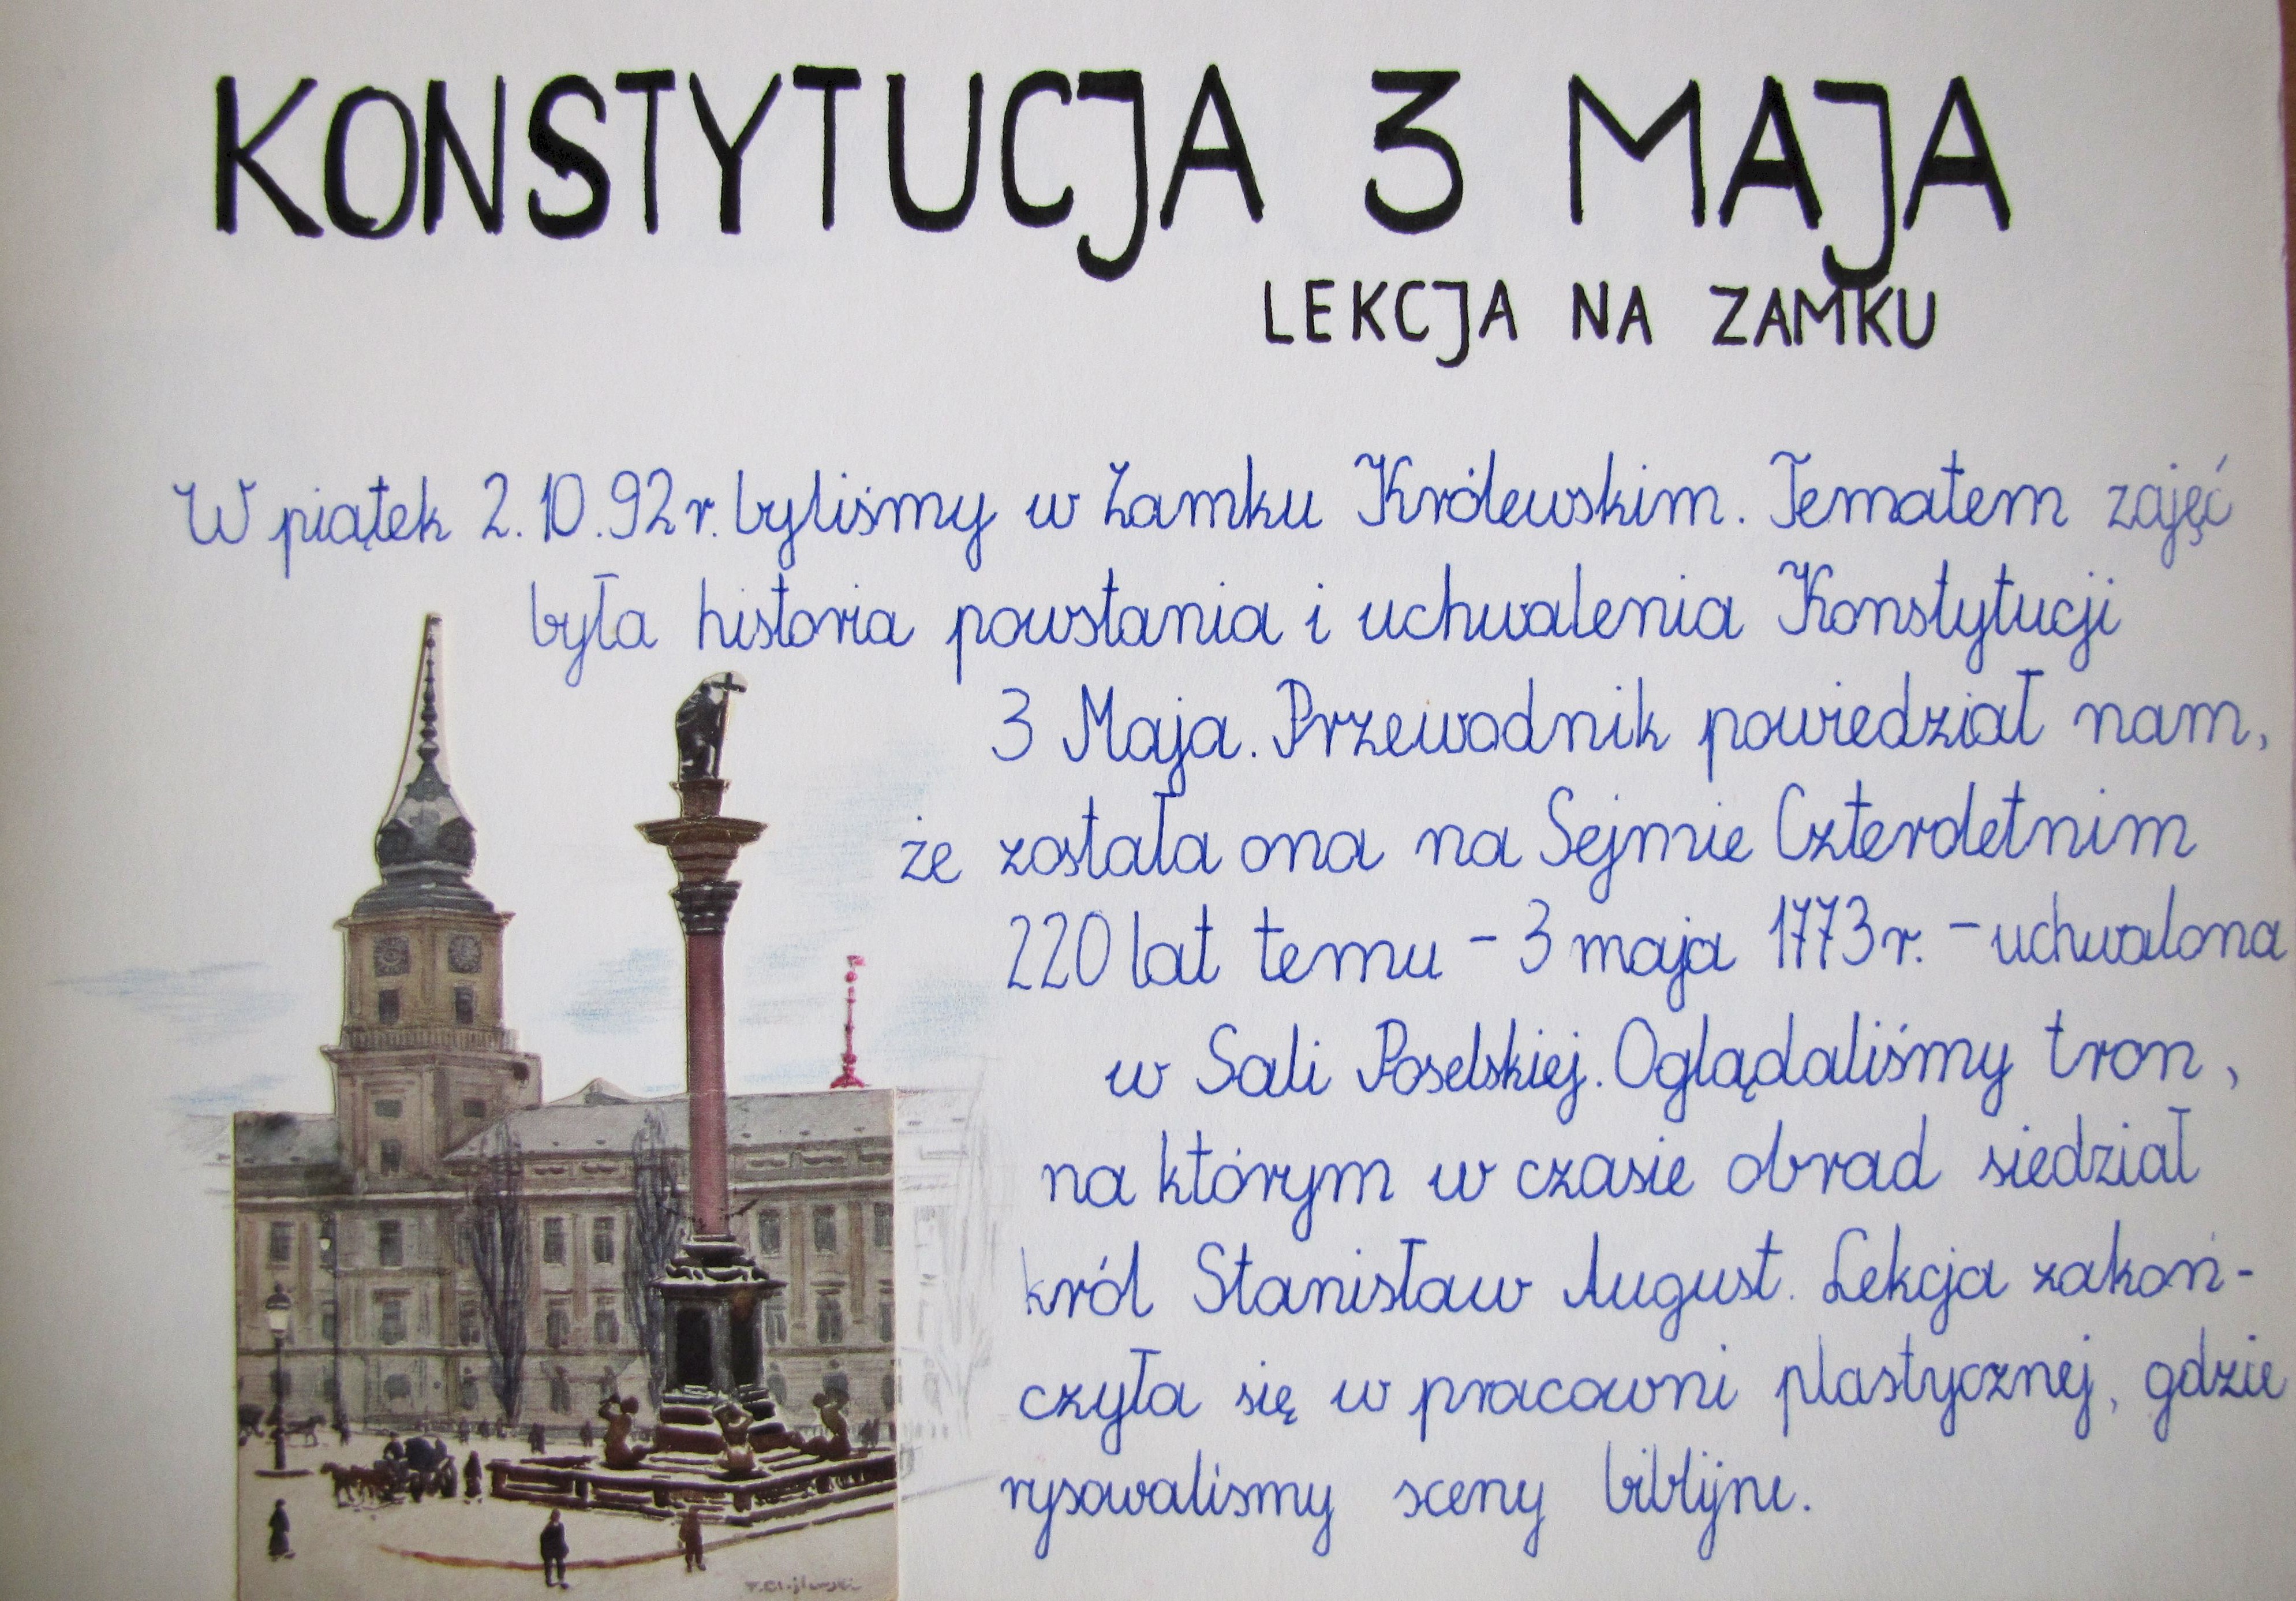 KONSTYTUCJA 3 MAJA
LEKCJA NA ZAMKU
W piątek 2.10.92r. byliśmy w Zamku Królewskim. Tematem zajęć
była historia powstania i uchwalenia Konstytucji
3 Maja. Przewodnik powiedział nam,
że została ona na Sejmie Czteroletnim
220 lat temu – 3 maja 1773r. – uchwalona
w Sali Poselskiej. Oglądaliśmy tron,
na którym w czasie obrad siedział
król Stanisław August. Lekcja zakoń-
czyła się w pracowni plastycznej, gdzie
rysowaliśmy sceny biblijne.